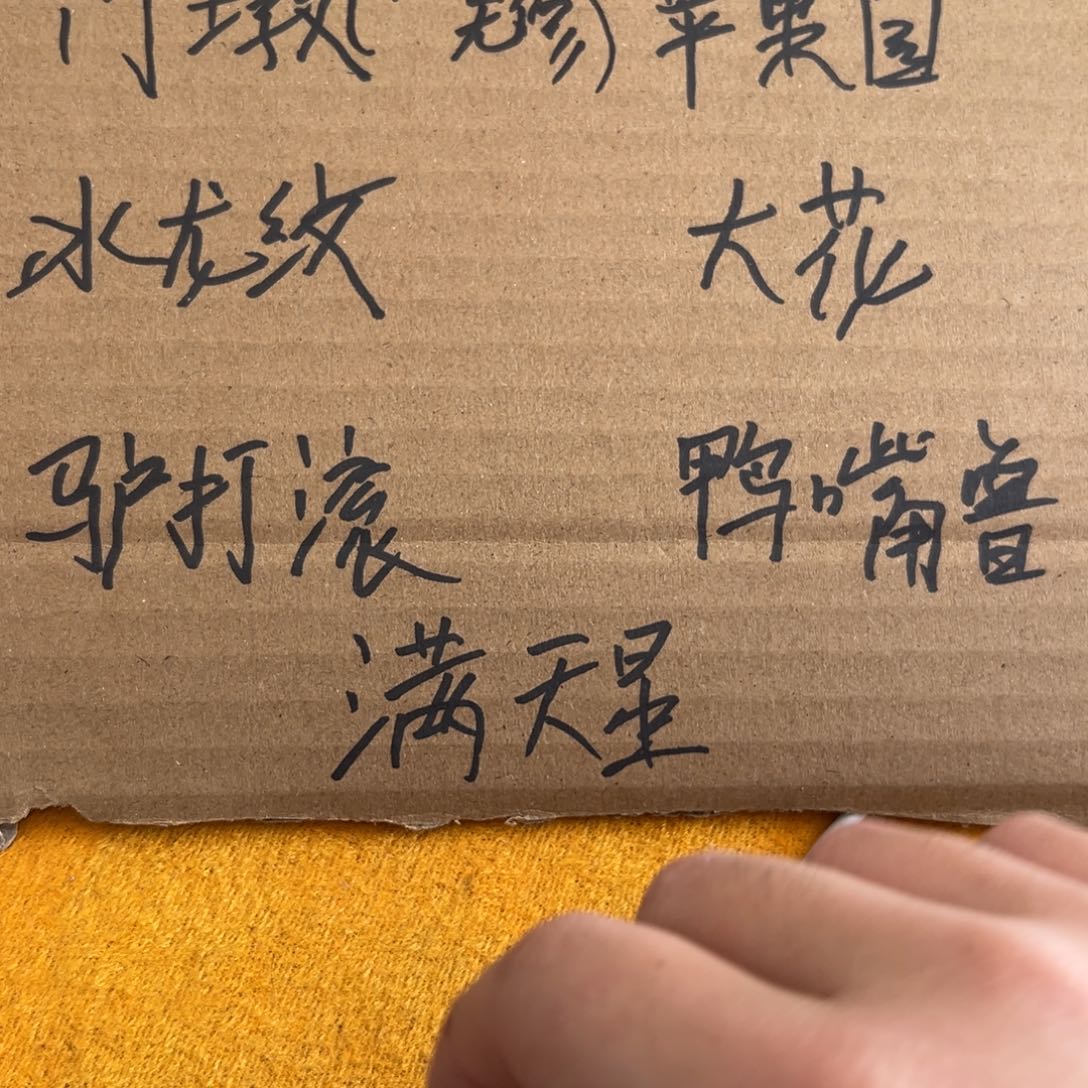 门墩 苹果园
水龙纹 大花
驴打滚 鸭嘴兽
满天星